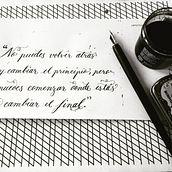 "No puedes volver atrás
y cambiar el principio, pero
puedes comenzar donde estás
y cambiar el final."